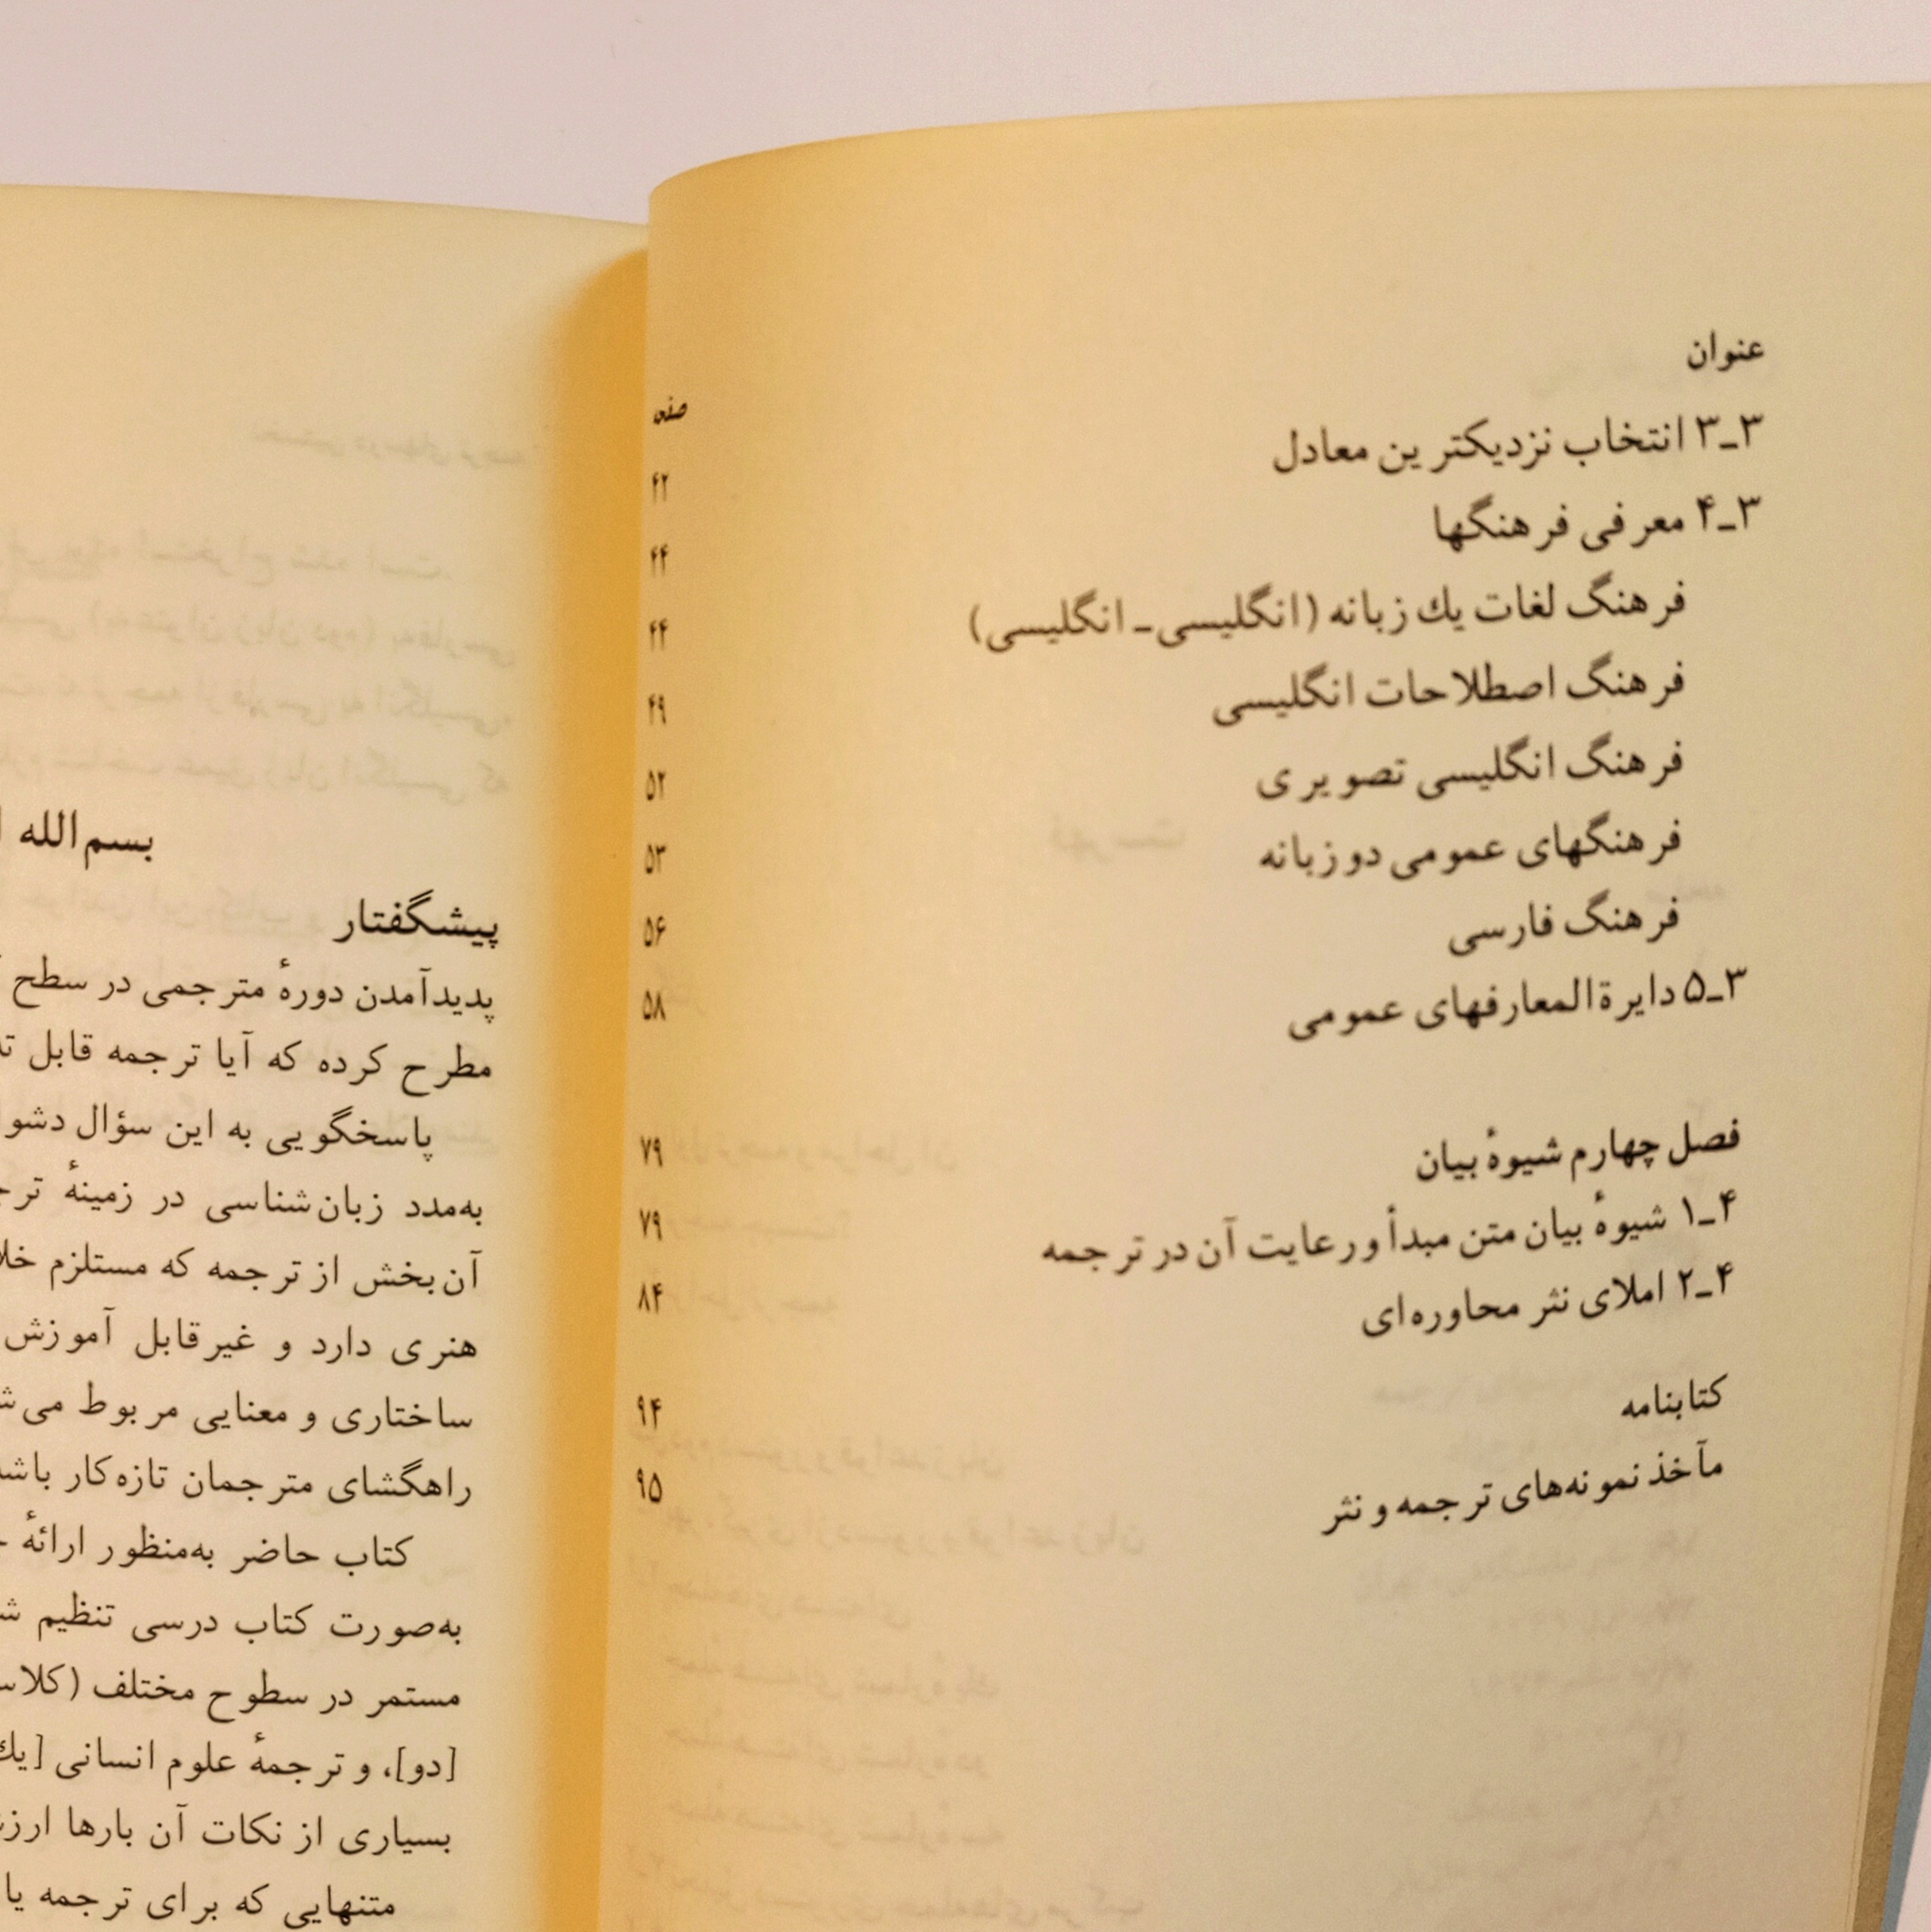 عنوان صفحه
۳ـ۳ انتخاب نزدیکترین معادل ۴۲
۳ـ۴ معرفی فرهنگها ۴۴
فرهنگ لغات یك زبانه (انگلیسی ـ انگلیسی) ۴۴
فرهنگ اصطلاحات انگلیسی ۴۹
فرهنگ انگلیسی تصویری ۵۲
فرهنگهای عمومی دوزبانه ۵۳
فرهنگ فارسی ۵۶
۳ـ۵ دایرةالمعارفهای عمومی ۵۸
فصل چهارم شیوهٔ بیان ۷۹
۴ـ۱ شیوهٔ بیان متن مبدأ و رعایت آن در ترجمه ۷۹
۴ـ۲ املای نثر محاوره‌ای ۸۴
کتابنامه ۹۴
مآخذ نمونه‌های ترجمه و نثر ۹۵
بسم‌الله
پیشگفتار
پدیدآمدن دورهٔ مترجمی در سطح
مطرح کرده که آیا ترجمه قابل
پاسخگویی به این سؤال
به‌مدد زبان‌شناسی در زمینهٔ
آن بخش از ترجمه که مستلزم
هنری دارد و غیرقابل آموزش
ساختاری و معنایی مربوط
راهگشای مترجمان تازه‌کار
کتاب حاضر به‌منظور ارائهٔ
به‌صورت کتاب درسی تنظیم
مستمر در سطوح مختلف
[دو]، و ترجمهٔ علوم انسانی [یك
بسیاری از نکات آن بارها
متنهایی که برای ترجمه یا